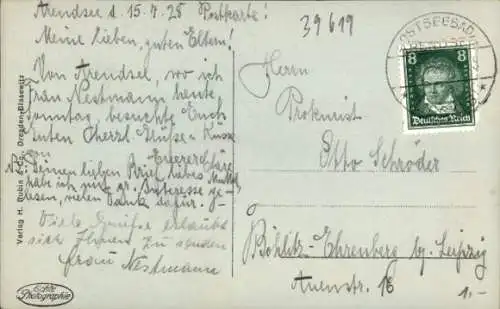 Arendsee d. 15.7.28 Postkarte!
39619
Meine lieben, guten Eltern!
Von Arendsee, wo ich
Frau Nestmann heute,
Sonntag, besuchte Euch
unten Herzl. Grüße u. Küsse
Euere
Deinen lieben Brief, liebes
habe ich mit gr. Interesse ge-
lesen, vielen Dank dafür.
Viele Grüße erlaubt
sich Ihnen zu senden
Frau Nestmann
OSTSEEBAD
8 8
Deutsches Reich
Herrn
Prokurist
Otto Schröder
Böhlitz-Ehrenberg bg. Leipzig
Auenstr. 16
1,-
Verlag H. Rubin & Co., Dresden-Blasewitz
Echte
Photographie